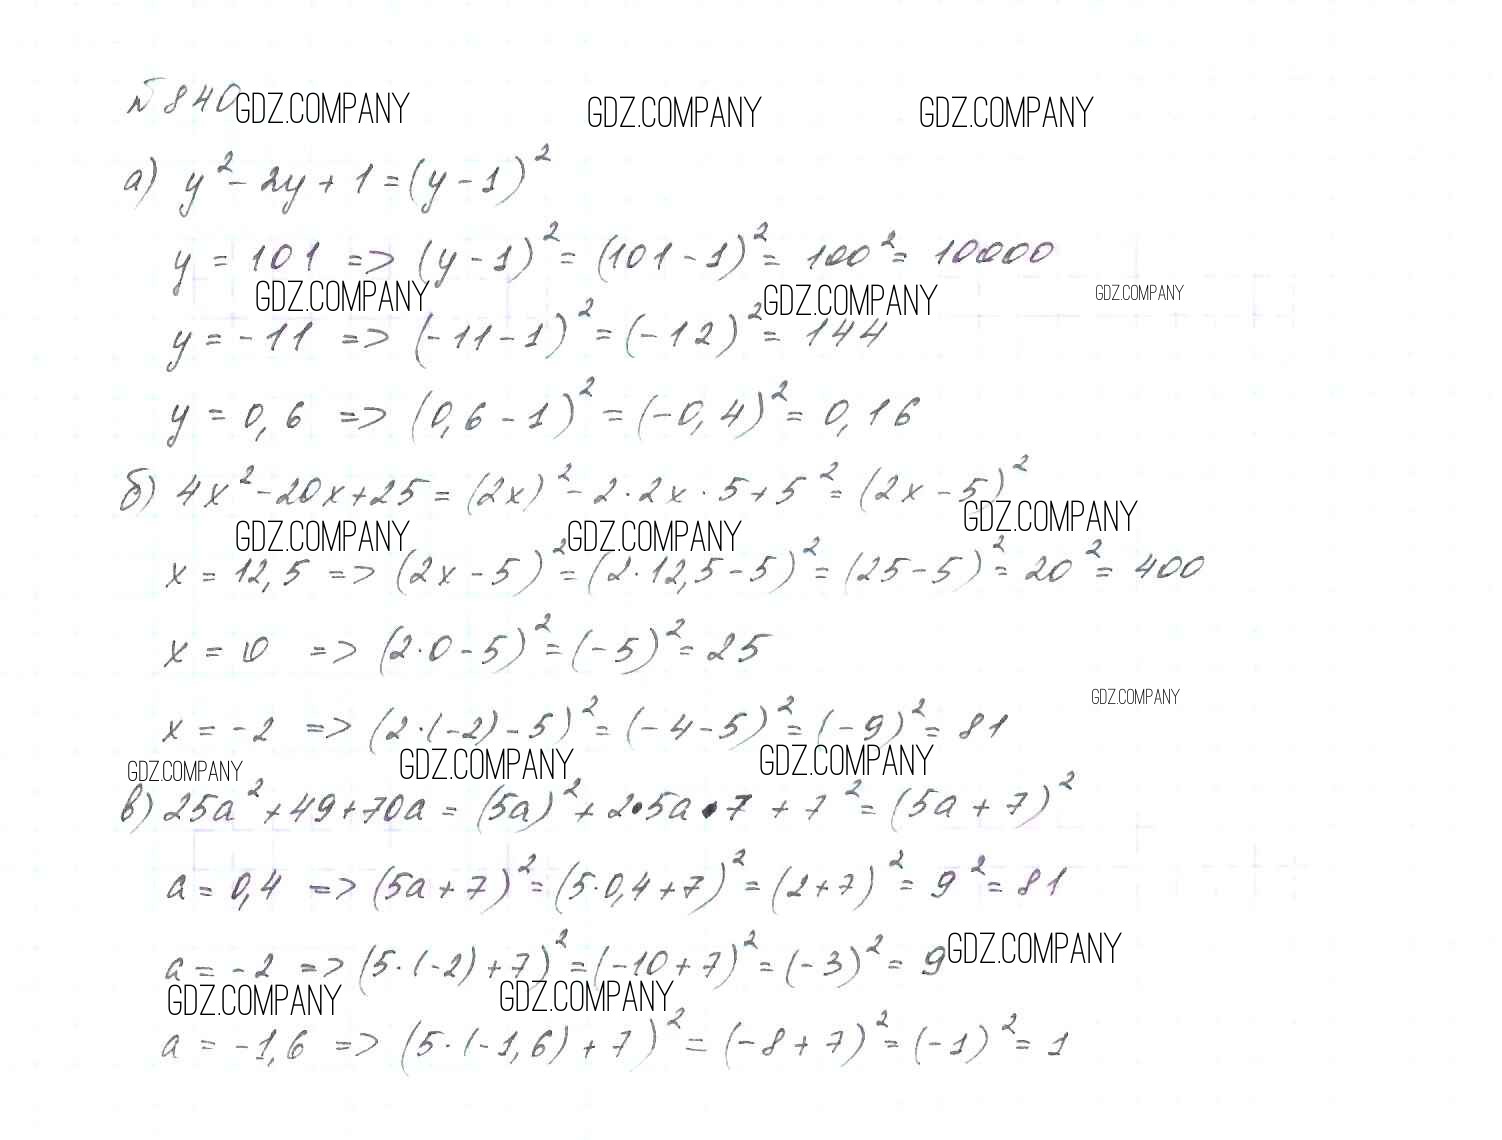 №840 GDZ.COMPANY GDZ.COMPANY GDZ.COMPANY
а) y² - 2y + 1 = (y - 1)²
y = 101 => (y - 1)² = (101 - 1)² = 100² = 10000
GDZ.COMPANY GDZ.COMPANY GDZ.COMPANY
y = -11 => (-11 - 1)² = (-12)² = 144
y = 0,6 => (0,6 - 1)² = (-0,4)² = 0,16
б) 4x² - 20x + 25 = (2x)² - 2 · 2x · 5 + 5² = (2x - 5)²
GDZ.COMPANY GDZ.COMPANY GDZ.COMPANY
x = 12,5 => (2x - 5)² = (2 · 12,5 - 5)² = (25 - 5)² = 20² = 400
x = 0 => (2 · 0 - 5)² = (-5)² = 25
GDZ.COMPANY
x = -2 => (2 · (-2) - 5)² = (-4 - 5)² = (-9)² = 81
GDZ.COMPANY GDZ.COMPANY GDZ.COMPANY
в) 25a² + 49 + 70a = (5a)² + 2 · 5a · 7 + 7² = (5a + 7)²
a = 0,4 => (5a + 7)² = (5 · 0,4 + 7)² = (2 + 7)² = 9² = 81
a = -2 => (5 · (-2) + 7)² = (-10 + 7)² = (-3)² = 9 GDZ.COMPANY
GDZ.COMPANY GDZ.COMPANY
a = -1,6 => (5 · (-1,6) + 7)² = (-8 + 7)² = (-1)² = 1